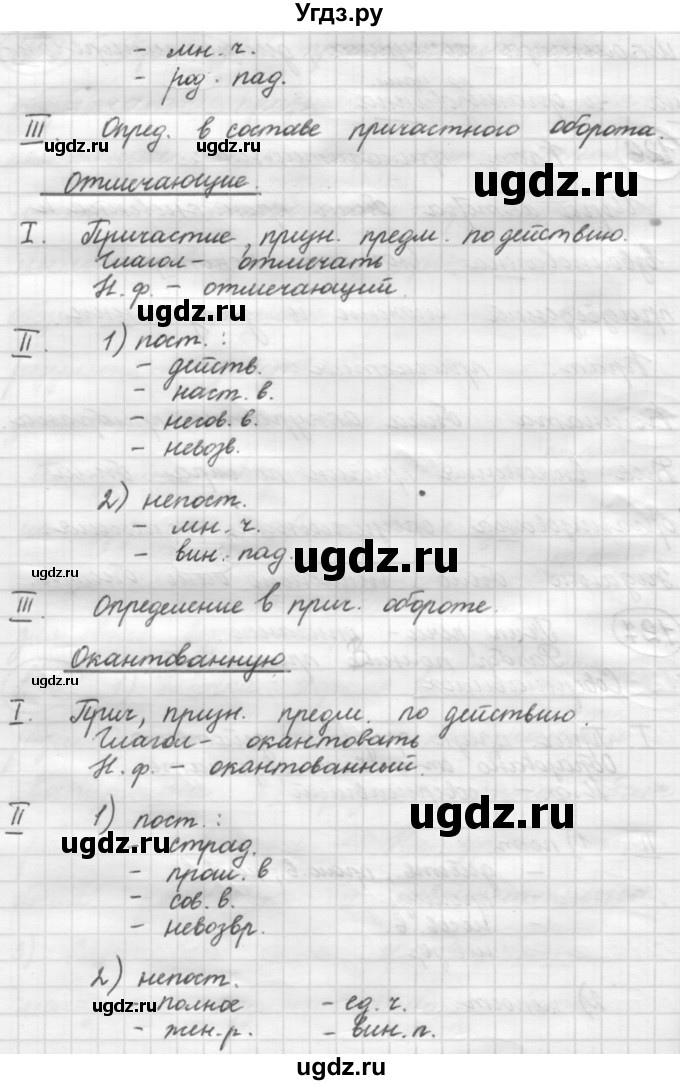 Угдз.ру
- мн. ч.
- род. пад.
III. Опред. в составе причастного оборота.
ugdz.ru ugdz.ru ugdz.ru
Отмечающие.
I. Причастие, призн. предм. по действию.
Глагол - отмечать
Н. ф. - отмечающий.
ugdz.ru
II. 1) пост. :
ugdz.ru
- действ.
- наст. в.
- несов. в.
- невозв.
2) непост.
- мн. ч.
- вин. пад.
ugdz.ru
ugdz.ru
III. Определение в прич. обороте.
ugdz.ru
Окантованную.
ugdz.ru
I. Прич., призн. предм. по действию.
Глагол - окантовать
Н. ф. - окантованный.
ugdz.ru
II 1) пост. :
ugdz.ru
- страд.
- прош. в
- сов. в.
- невозвр.
2) непост.
ugdz.ru
- полное - ед. ч.
- жен. р. - вин. п.
ugdz.ru
ugdz.ru